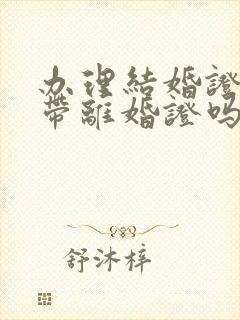 办理結婚證
帶離婚證吗
舒沐梓